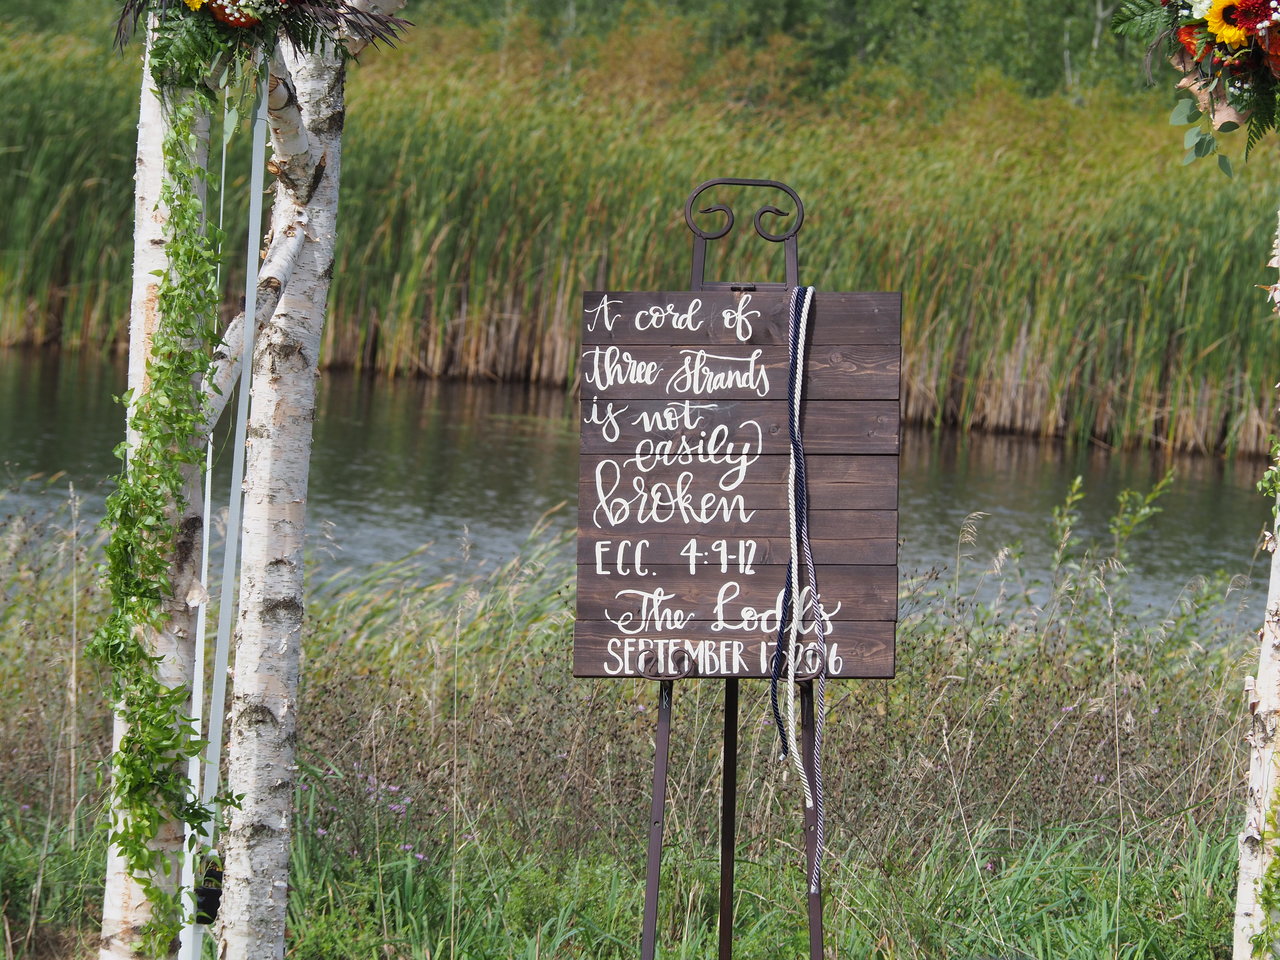 A cord of
three strands
is not
easily
broken
ECC. 4:9-12
The
SEPTEMBER 17 2016